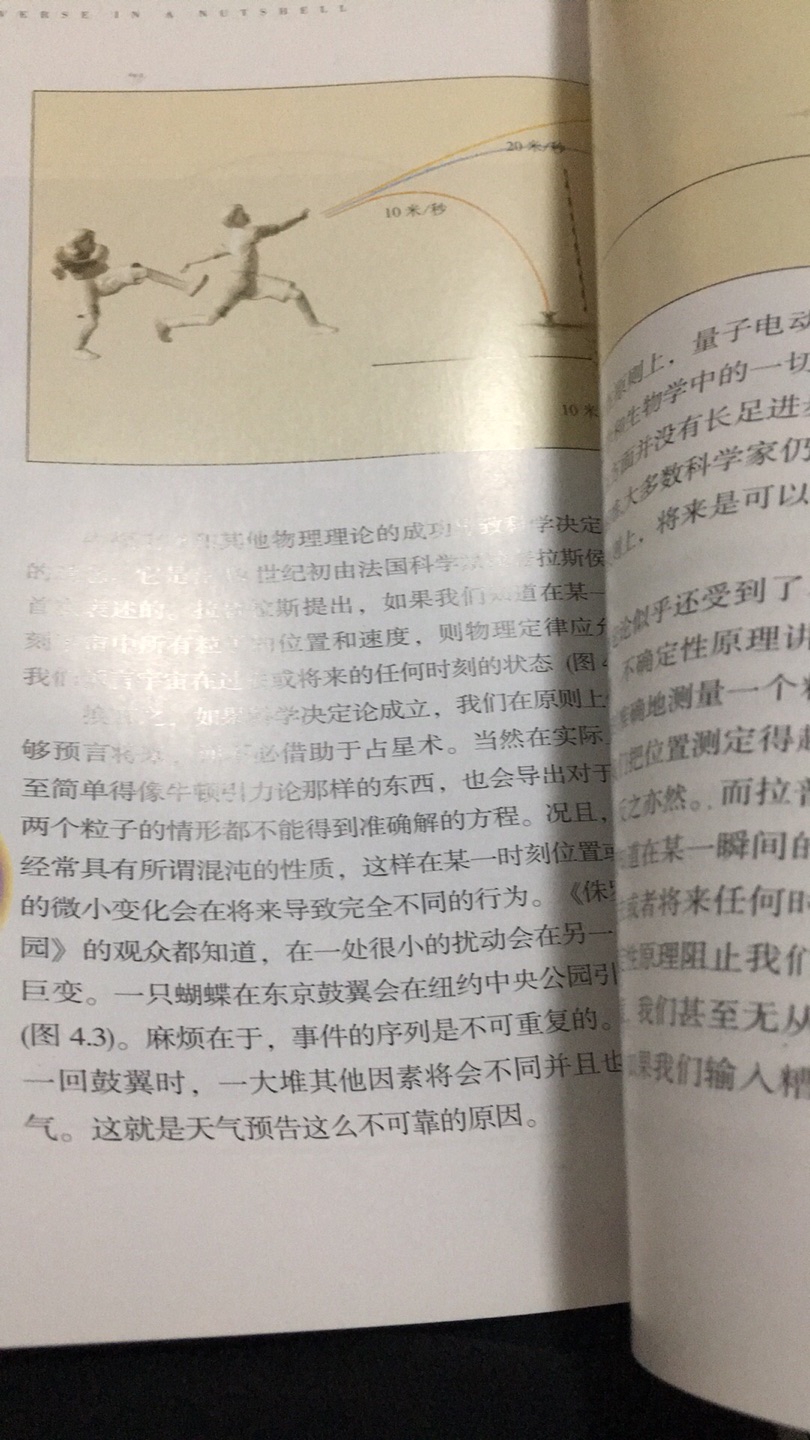 VERSE IN A NUTSHELL
20 米/秒
10 米/秒
10 米
其他物理理论的成功 学决定
的 它是 世纪初由法国科学 拉斯侯
首 表述的 拉斯提出，如果我们 道在某一
刻 中所有粒 的位置和速度，则物理定律应允
我们 言宇宙在过 或将来的任何时刻的状态 (图 4
换 之，如果 学决定论成立，我们在原则上
够预言将来， 必借助于占星术。当然在实际
至简单得像牛顿引力论那样的东西，也会导出对于
两个粒子的情形都不能得到准确解的方程。况且，
经常具有所谓混沌的性质，这样在某一时刻位置或
的微小变化会在将来导致完全不同的行为。《侏罗
园》的观众都知道，在一处很小的扰动会在另一
巨变。一只蝴蝶在东京鼓翼会在纽约中央公园引
(图 4.3)。麻烦在于，事件的序列是不可重复的。
一回鼓翼时，一大堆其他因素将会不同并且也
气。这就是天气预告这么不可靠的原因。
原则上，量子电动
和生物学中的一切
面并没有长足进
大多数科学家仍
上，将来是可以
论似乎还受到了
不确定性原理讲
准确地测量一个粒
把位置测定得越
之亦然。而拉普
道在某一瞬间的
或者将来任何时
性原理阻止我们
我们甚至无从
果我们输入糟